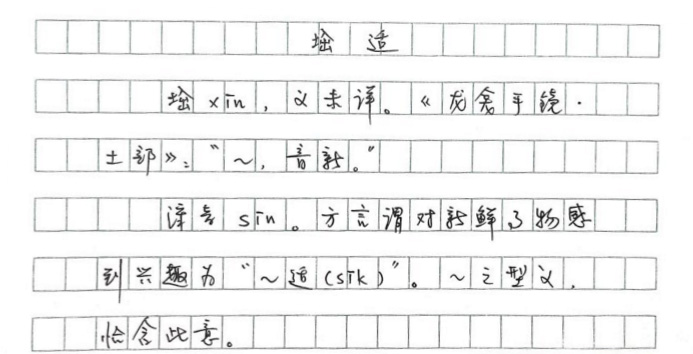 适
xīn，义未详。《龙龛手镜·
土部》：“～，音新。”
漳音 sin。方言谓对新鲜事物感
到兴趣为“～适（sik）”。～之型义，
恰含此意。